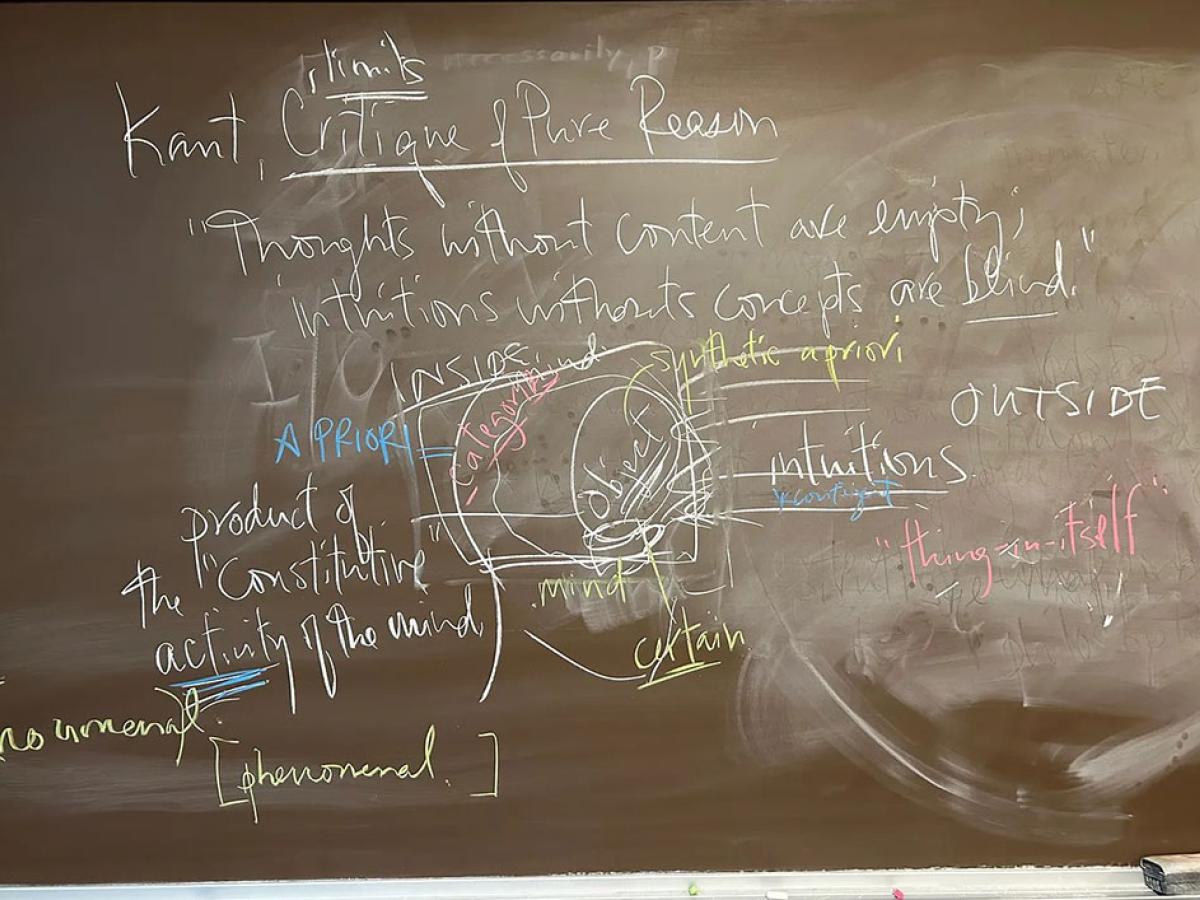 limits
necessarily, P
Kant, Critique of Pure Reason
"Thoughts without content are empty;
intuitions withouts concepts are blind."
INSIDE mind
synthetic a priori
categories
OUTSIDE
A PRIORI
object
intuitions
contingent
product of
"thing-in-itself"
the "Constitutive"
mind
activity of the mind,
certain
noumenal
[phenomenal.]